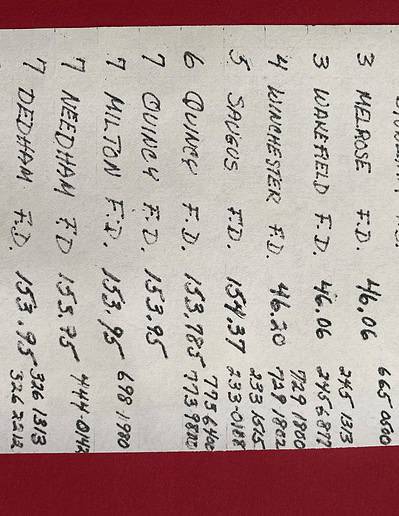 665 0500
3 MELROSE F.D. 46.06
245 1313
3 WAKEFIELD F.D. 46.06 245 6817
729 1800
4 WINCHESTER F.D. 46.20 729 1802
233 1575
5 SAUGUS F.D. 154.37 233-0188
773 6400
6 QUINCY F.D. 153.785 773
7 QUINCY F.D. 153.95
7 MILTON F.D. 153.95 698-1980
7 NEEDHAM F.D 155.75 444-0142
7 DEDHAM F.D. 153.95 326 1313
326 2212